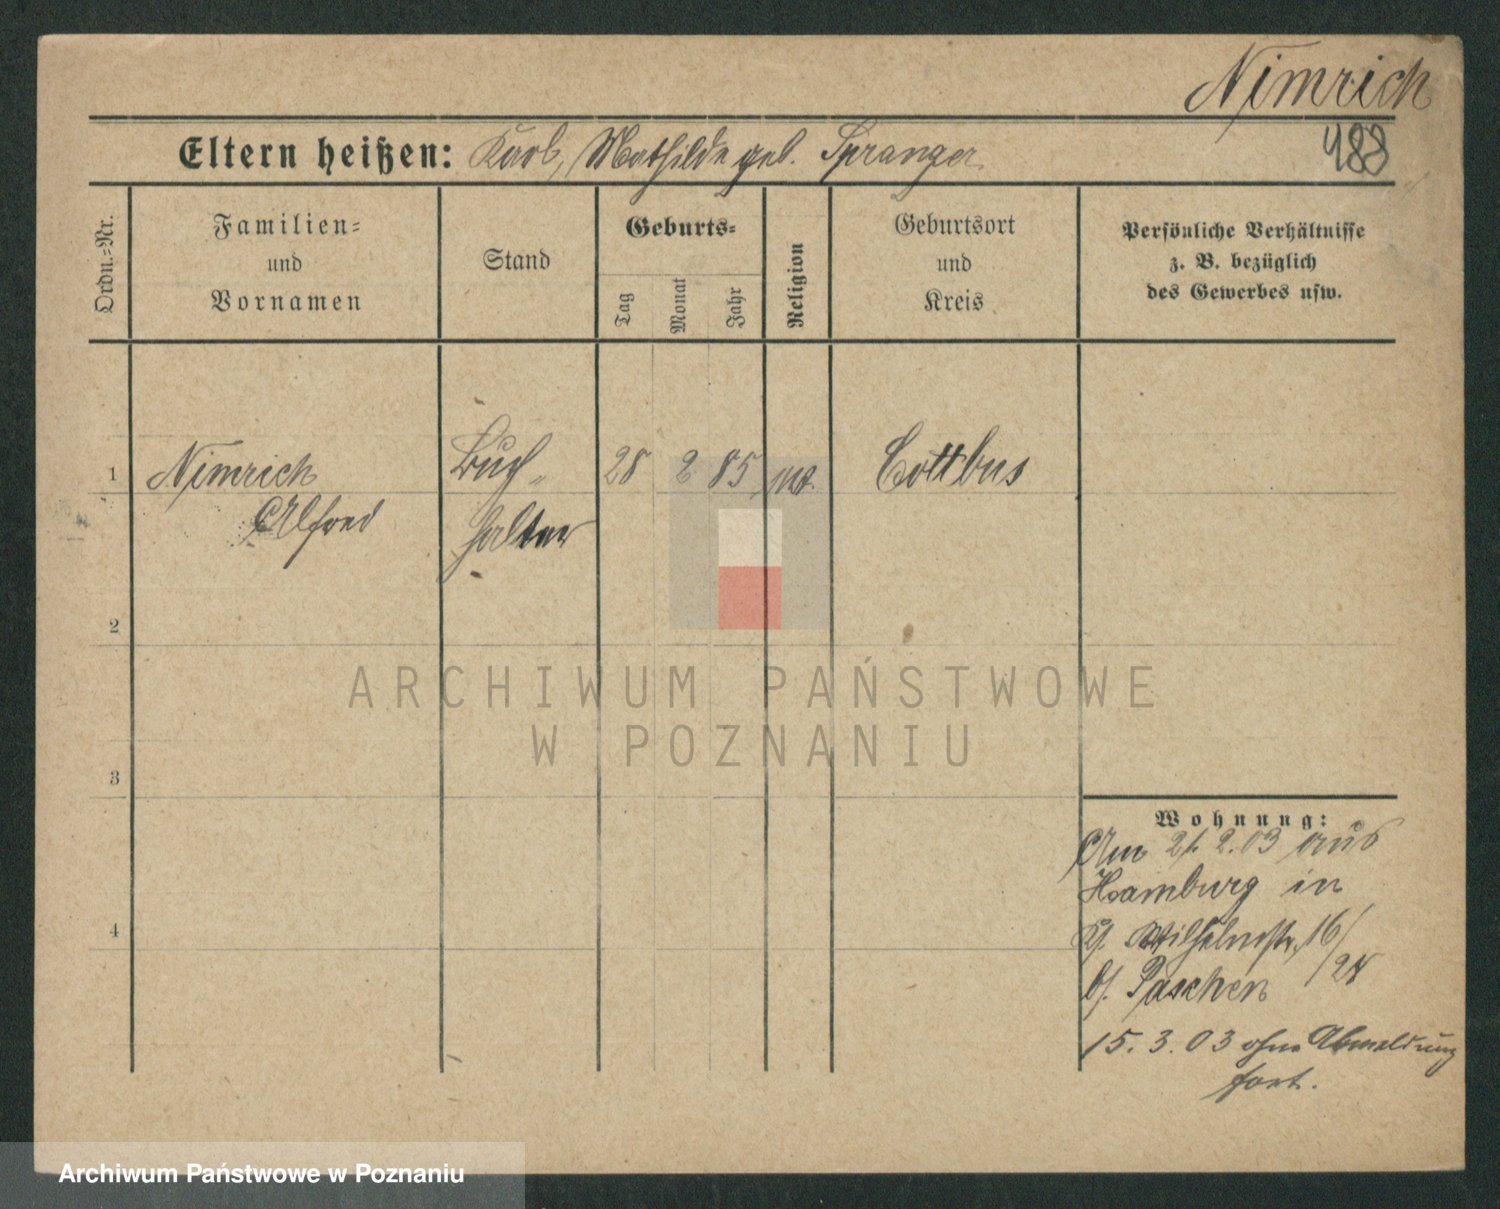 Nimrich
488
Eltern heißen: Karl, Mathilde geb. Spranger
Ordn.=Nr.
Familien=
und
Vornamen
Stand
Geburts=
Tag
Monat
Jahr
Religion
Geburtsort
und
Kreis
Persönliche Verhältnisse
z. B. bezüglich
des Gewerbes usw.
1 Nimrich Buch- 28 2 85 Cottbus
Alfred halter
2
ARCHIWUM PAŃSTWOWE
W POZNANIU
3
Wohnung:
Am 21. 2. 03 aus
Hamburg in
Wilhelmstr. 16/
b/. Paschen /28
4
15. 3. 03 ohne Abmeldung
fort.
Archiwum Państwowe w Poznaniu